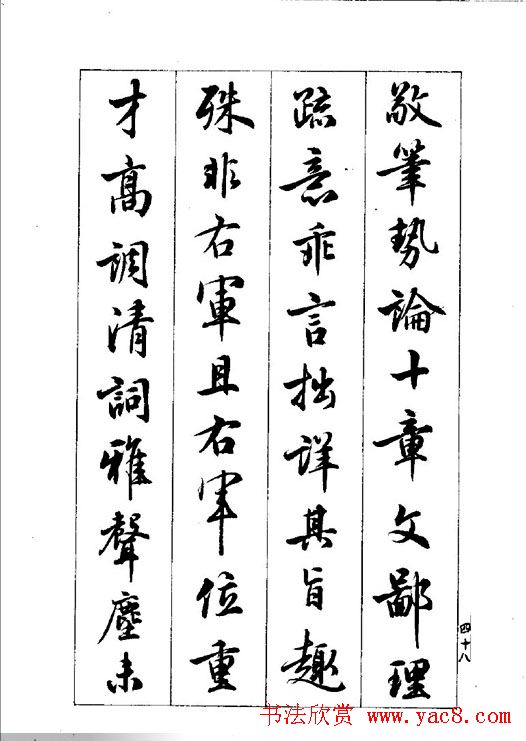 敬筆勢論十章文鄙理
疏意乖言拙詳其旨趣
殊非右軍且右軍位重
才高調清詞雅聲塵未
四十八
书法欣赏 www.yac8.com